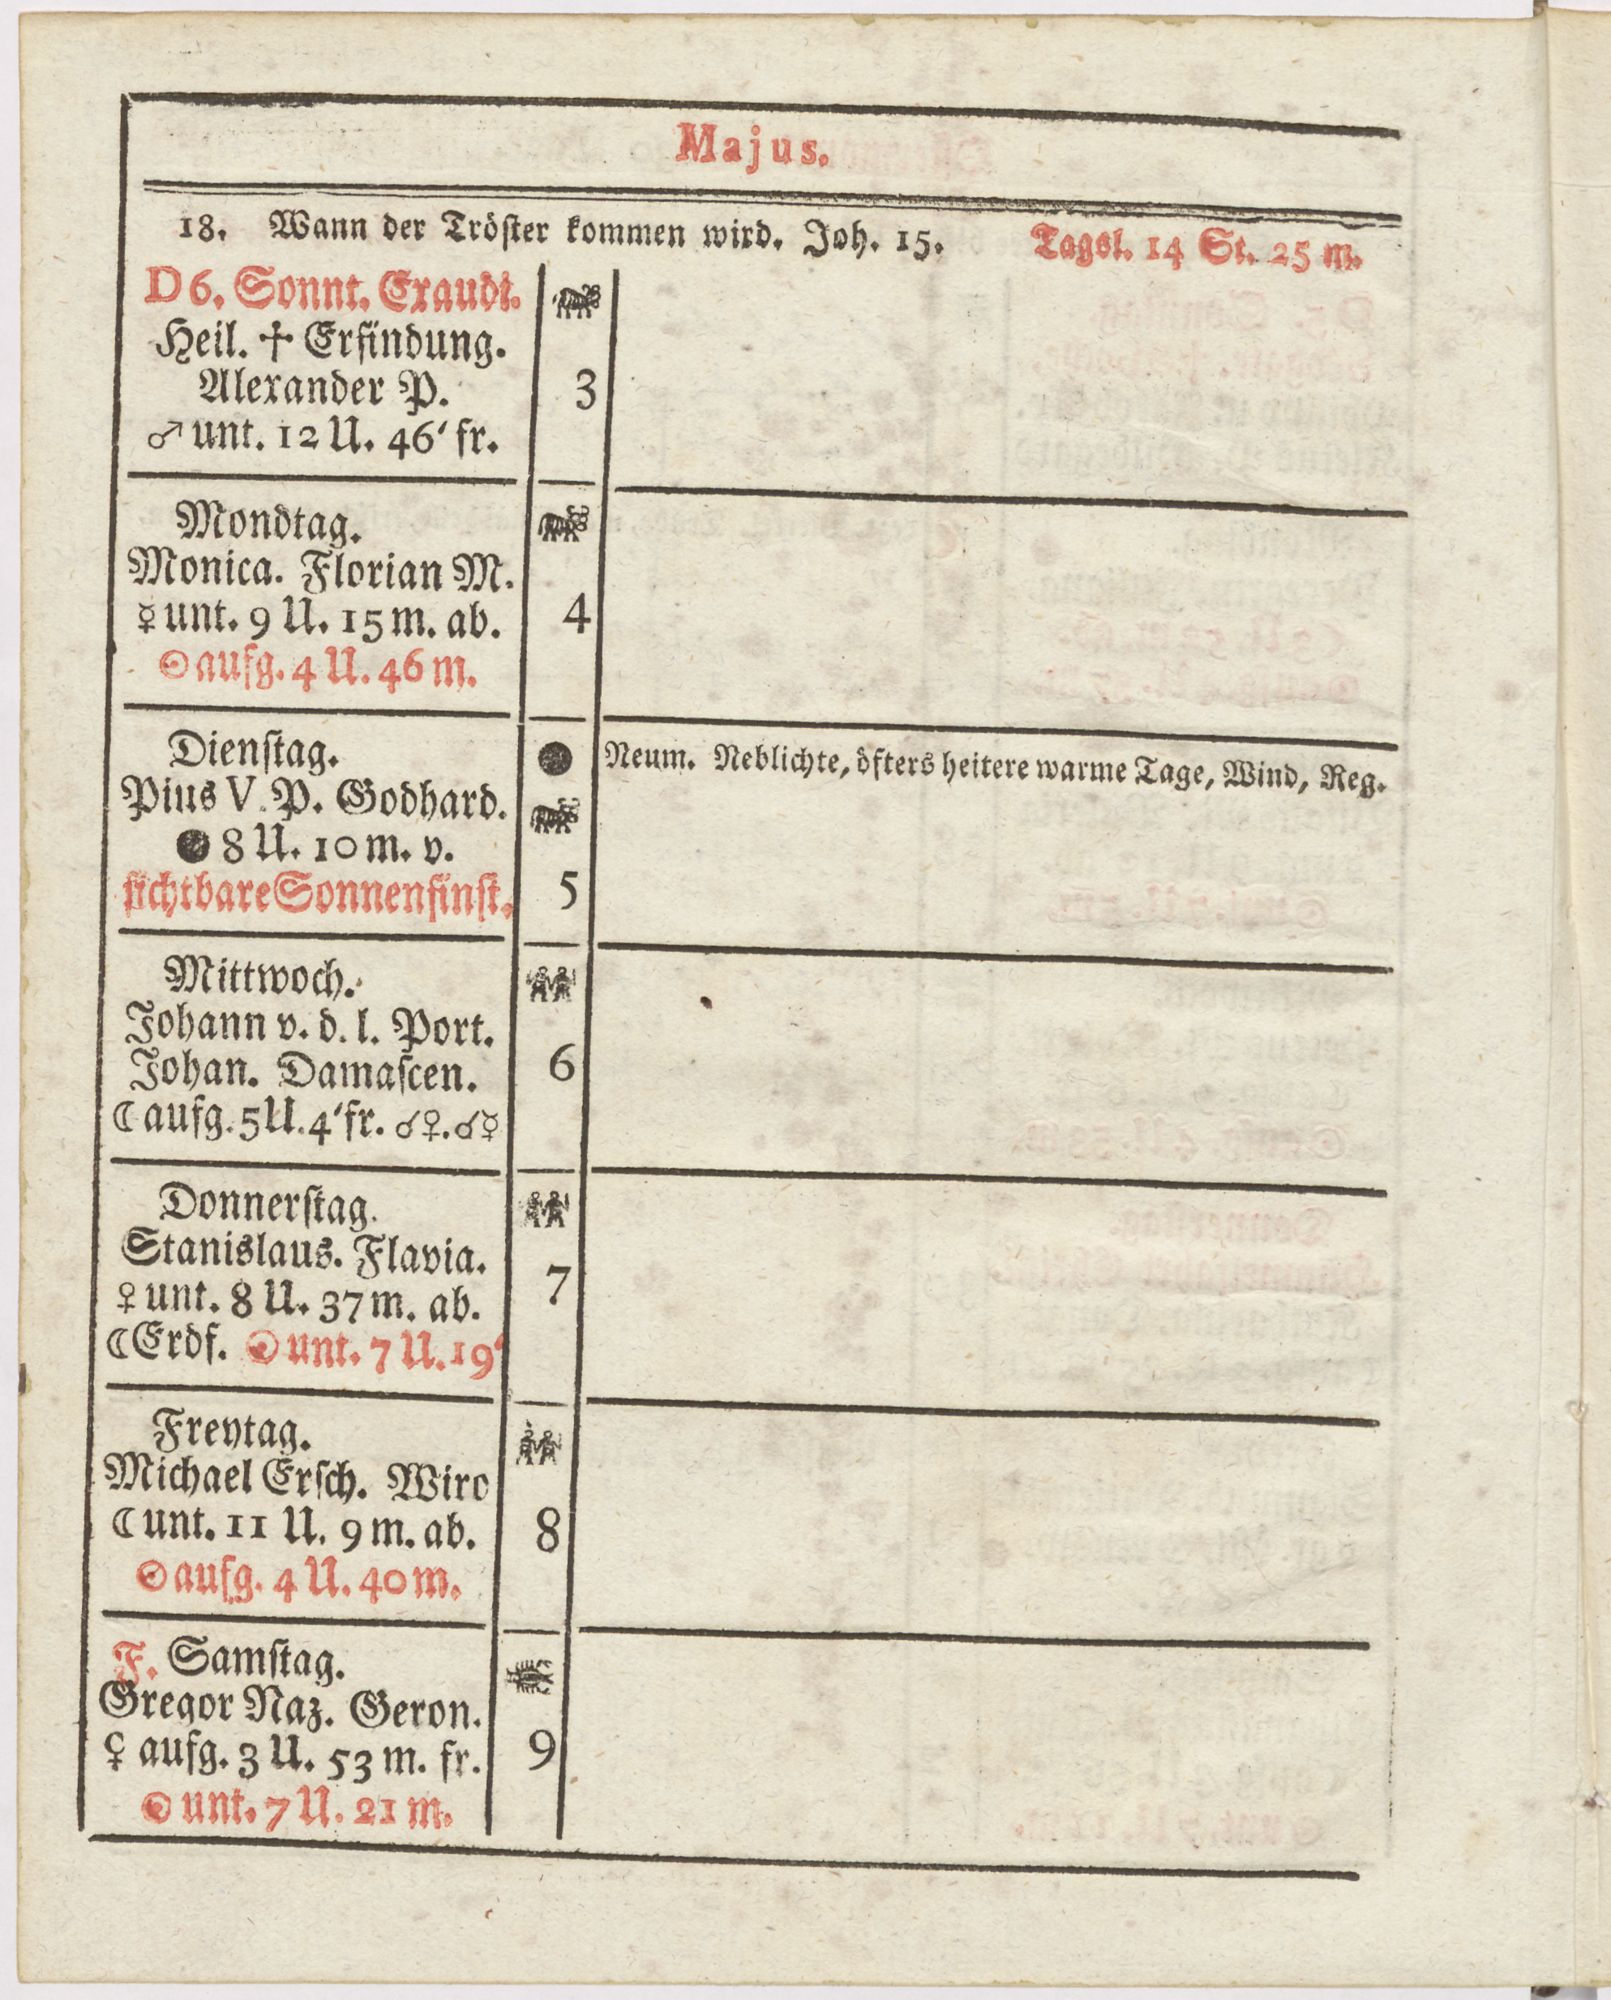 Majus.
18. Wann der Tröſter kommen wird. Joh. 15. Tagsl. 14 St. 25 m.
D 6. Sonnt. Exaudi.
Heil. ✝ Erfindung.
Alexander P.
3
♂ unt. 12 U. 46' fr.
Mondtag.
Monica. Florian M.
☿ unt. 9 U. 15 m. ab.
4
☉ aufg. 4 U. 46 m.
Dienſtag.
Neum. Neblichte, öfters heitere warme Tage, Wind, Reg.
Pius V. P. Godhard.
● 8 U. 10 m. v.
ſichtbare Sonnenfinſt.
5
Mittwoch.
Johann v. d. l. Port.
Johan. Damaſcen.
6
☾ aufg. 5 U. 4' fr. ☌♀. ☌☿
Donnerſtag.
Stanislaus. Flavia.
♀ unt. 8 U. 37 m. ab.
7
☾ Erdf. ☉ unt. 7 U. 19'
Freytag.
Michael Erſch. Wiro
☾ unt. 11 U. 9 m. ab.
8
☉ aufg. 4 U. 40 m.
F. Samſtag.
Gregor Naz. Geron.
♀ aufg. 3 U. 53 m. fr.
9
☉ unt. 7 U. 21 m.